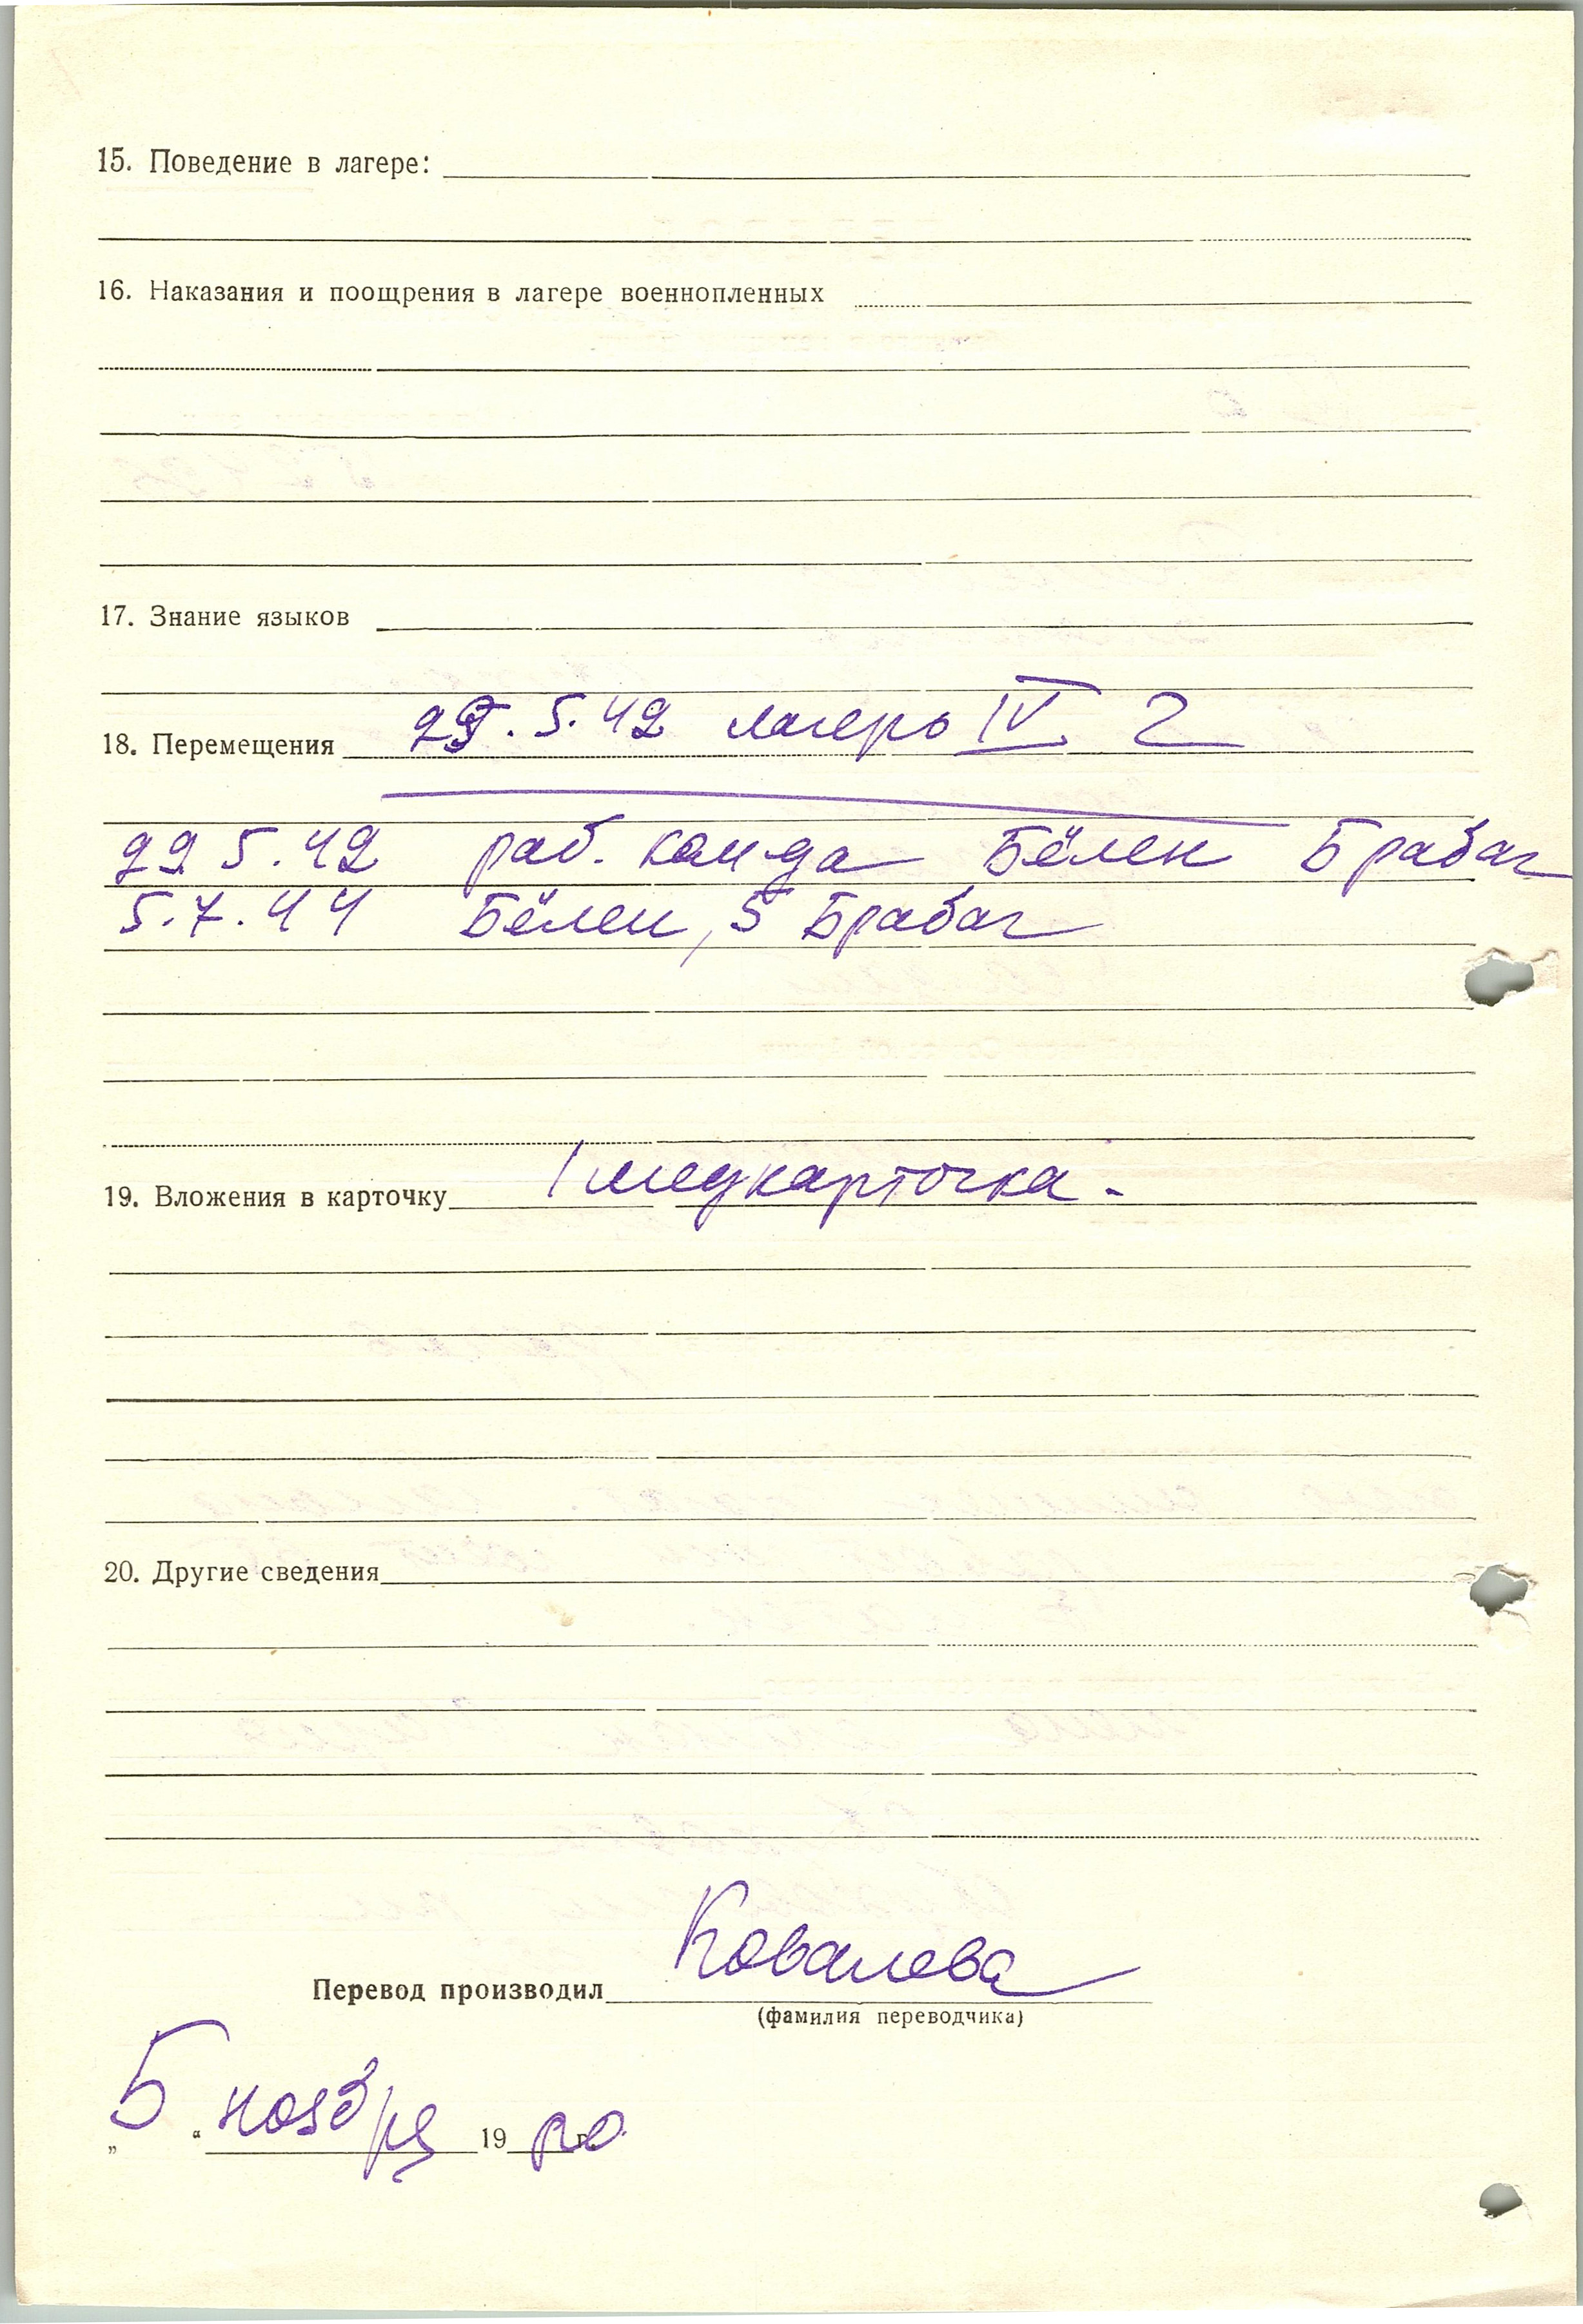 15. Поведение в лагере:
16. Наказания и поощрения в лагере военнопленных
17. Знание языков
18. Перемещения 29.5.42 лагерь IV Г
29 5.42 раб. кам-да Бёлен Брабаг
5.7.44 Бёлен, 5 Брабаг
19. Вложения в карточку 1 медкарточка.
20. Другие сведения
Перевод производил Ковалева
(фамилия переводчика)
„5“ ноября 19 г.